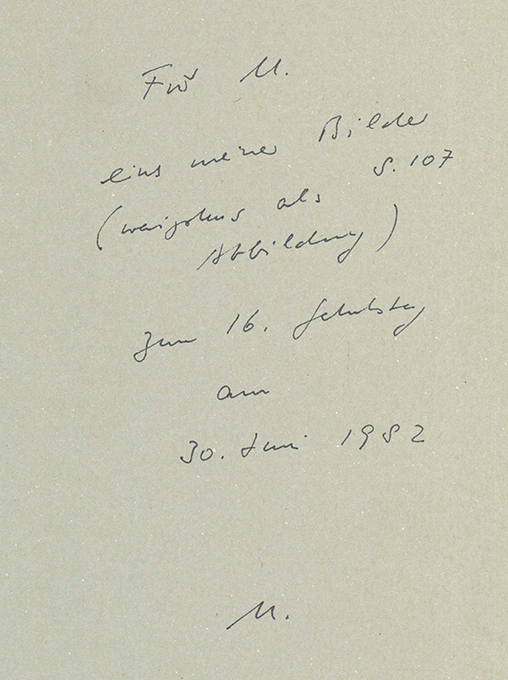 Für M.
eins meiner Bilder
S. 107
(wenigstens als
Abbildung)
zum 16. Geburtstag
am
30. Juni 1982
M.